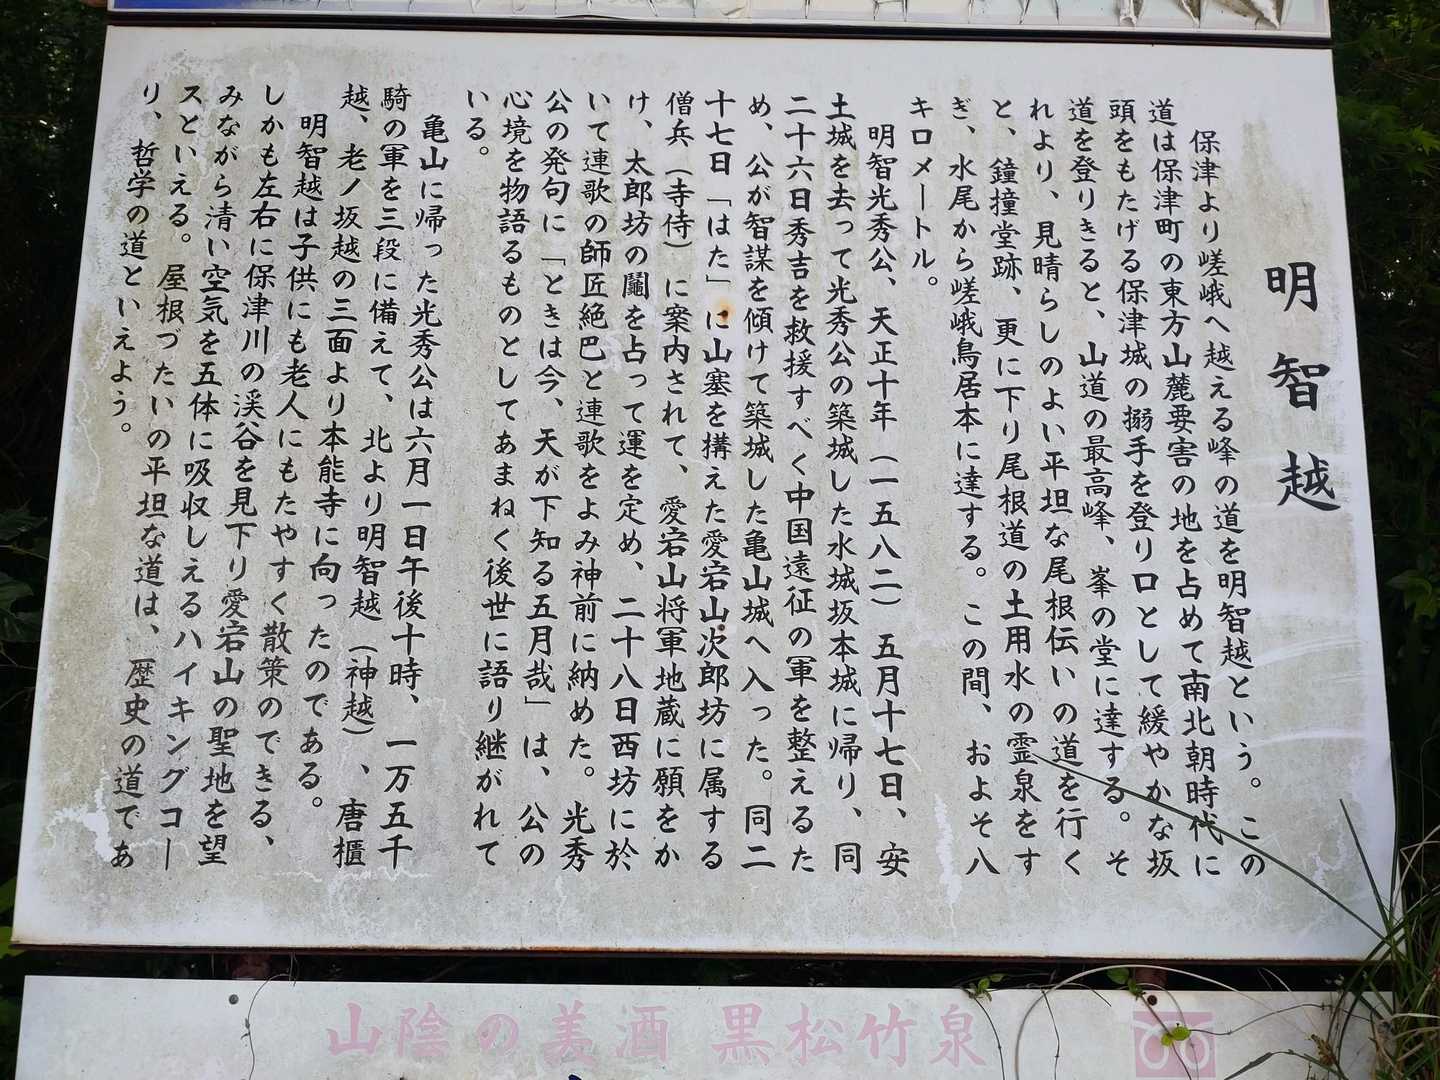 明智越
保津より嵯峨へ越える峰の道を明智越という。この
道は保津町の東方山麓要害の地を占めて南北朝時代に
頭をもたげる保津城の搦手を登り口として緩やかな坂
道を登りきると、山道の最高峰、峯の堂に達する。そ
れより、見晴らしのよい平坦な尾根伝いの道を行く
と、鐘撞堂跡、更に下り尾根道の土用水の霊泉をす
ぎ、水尾から嵯峨鳥居本に達する。この間、およそ八
キロメートル。
明智光秀公、天正十年（一五八二）五月十七日、安
土城を去って光秀公の築城した水城坂本城に帰り、同
二十六日秀吉を救援すべく中国遠征の軍を整えるた
め、公が智謀を傾けて築城した亀山城へ入った。同二
十七日「はた」に山塞を構えた愛宕山次郎坊に属する
僧兵（寺侍）に案内されて、愛宕山将軍地蔵に願をか
け、太郎坊の鬮を占って運を定め、二十八日西坊に於
いて連歌の師匠絶巴と連歌をよみ神前に納めた。光秀
公の発句に「ときは今、天が下知る五月哉」は、公の
心境を物語るものとしてあまねく後世に語り継がれて
いる。
亀山に帰った光秀公は六月一日午後十時、一万五千
騎の軍を三段に備えて、北より明智越（神越）、唐櫃
越、老ノ坂越の三面より本能寺に向ったのである。
明智越は子供にも老人にもたやすく散策のできる、
しかも左右に保津川の渓谷を見下り愛宕山の聖地を望
みながら清い空気を五体に吸収しえるハイキングコー
スといえる。屋根づたいの平坦な道は、歴史の道であ
り、哲学の道といえよう。
山陰の美酒 黒松竹泉